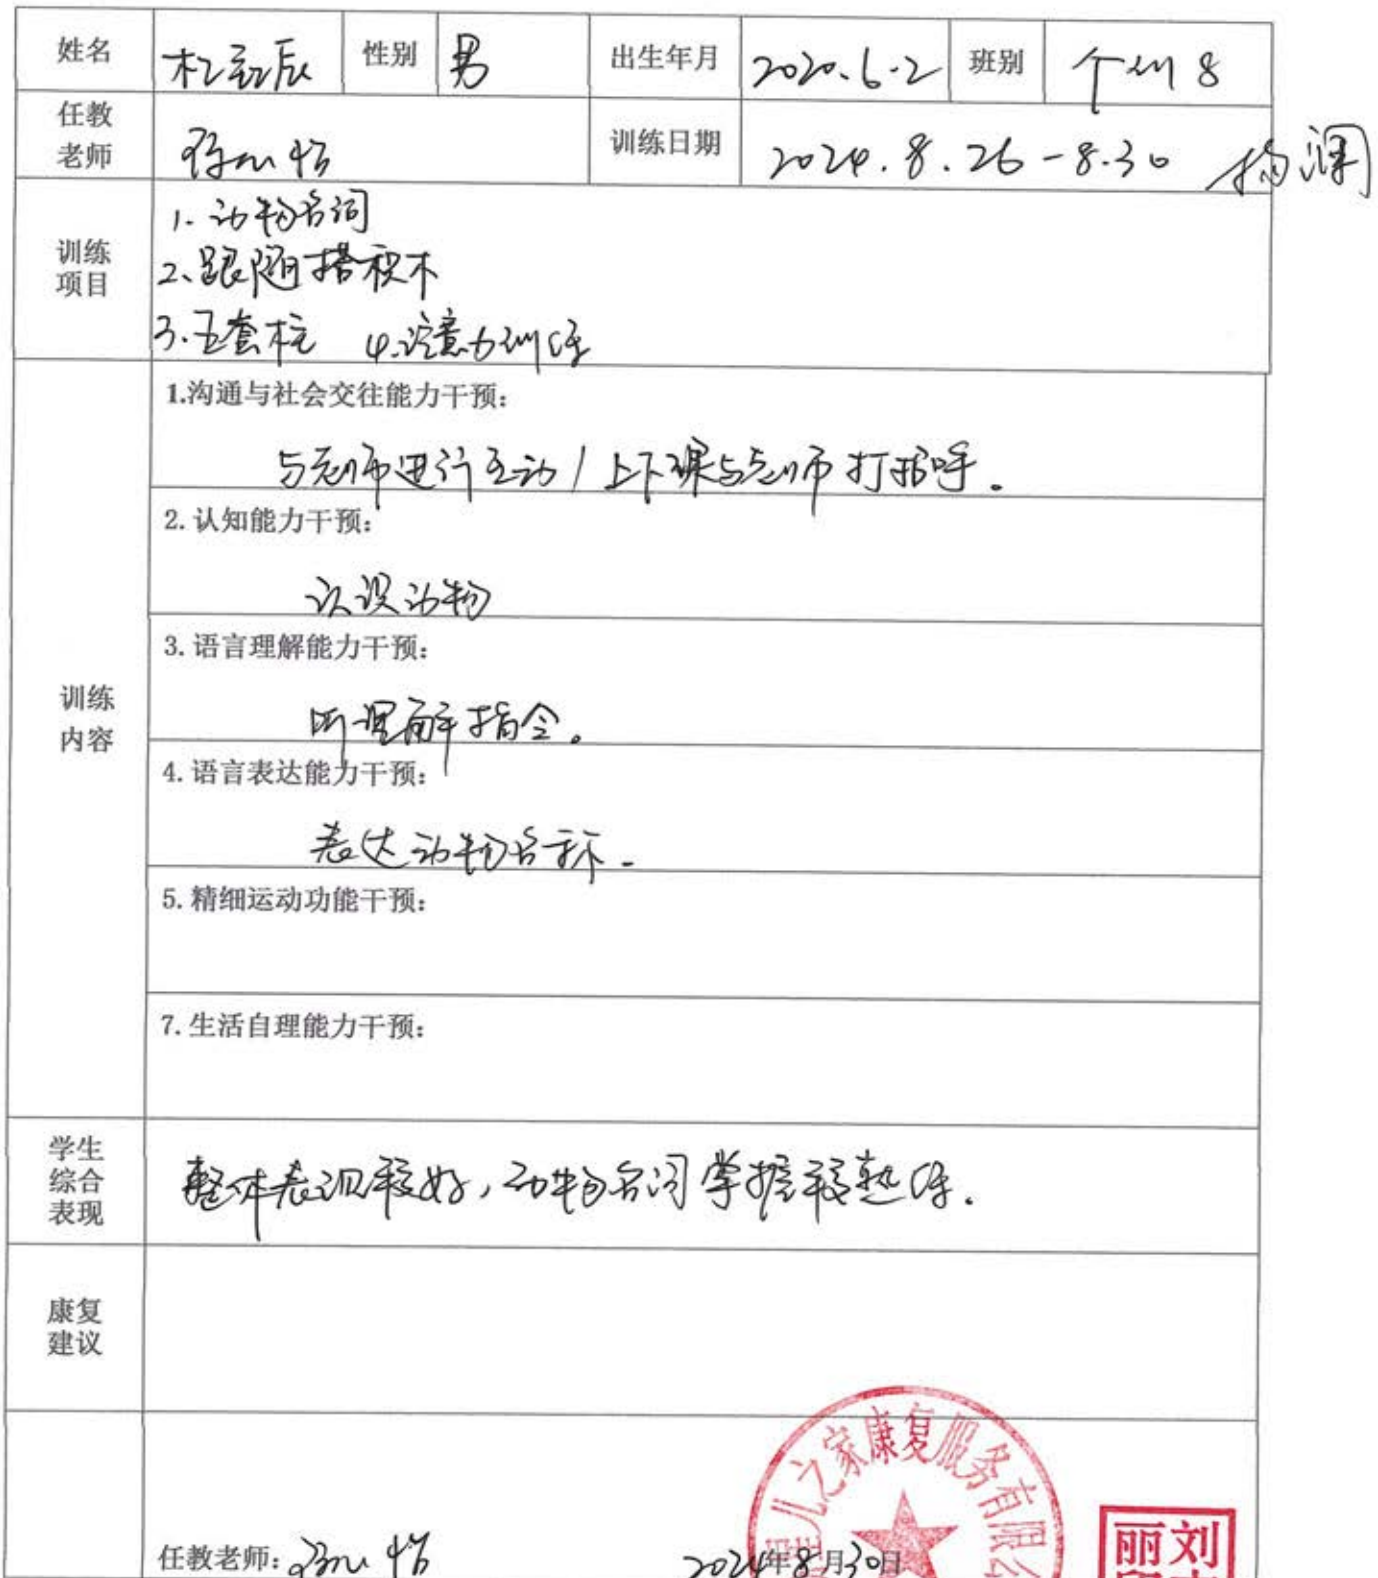 姓名 性别 男 出生年月 2020.6.2 班别 个训8
任教老师 训练日期 2024.8.26-8.30
训练项目
1.动物名词
2.跟随搭积木
3.五套柱 4.注意力训练
训练内容
1.沟通与社会交往能力干预:
与老师进行互动/上下课与老师打招呼。
2.认知能力干预:
认识动物
3.语言理解能力干预:
听理解指令。
4.语言表达能力干预:
表达动物名称.
5.精细运动功能干预:
7.生活自理能力干预:
学生综合表现
整体表现较好,动物名词掌握较熟练.
康复建议
儿之家康复服务有限公
任教老师: 2024年8月30日
刘
丽